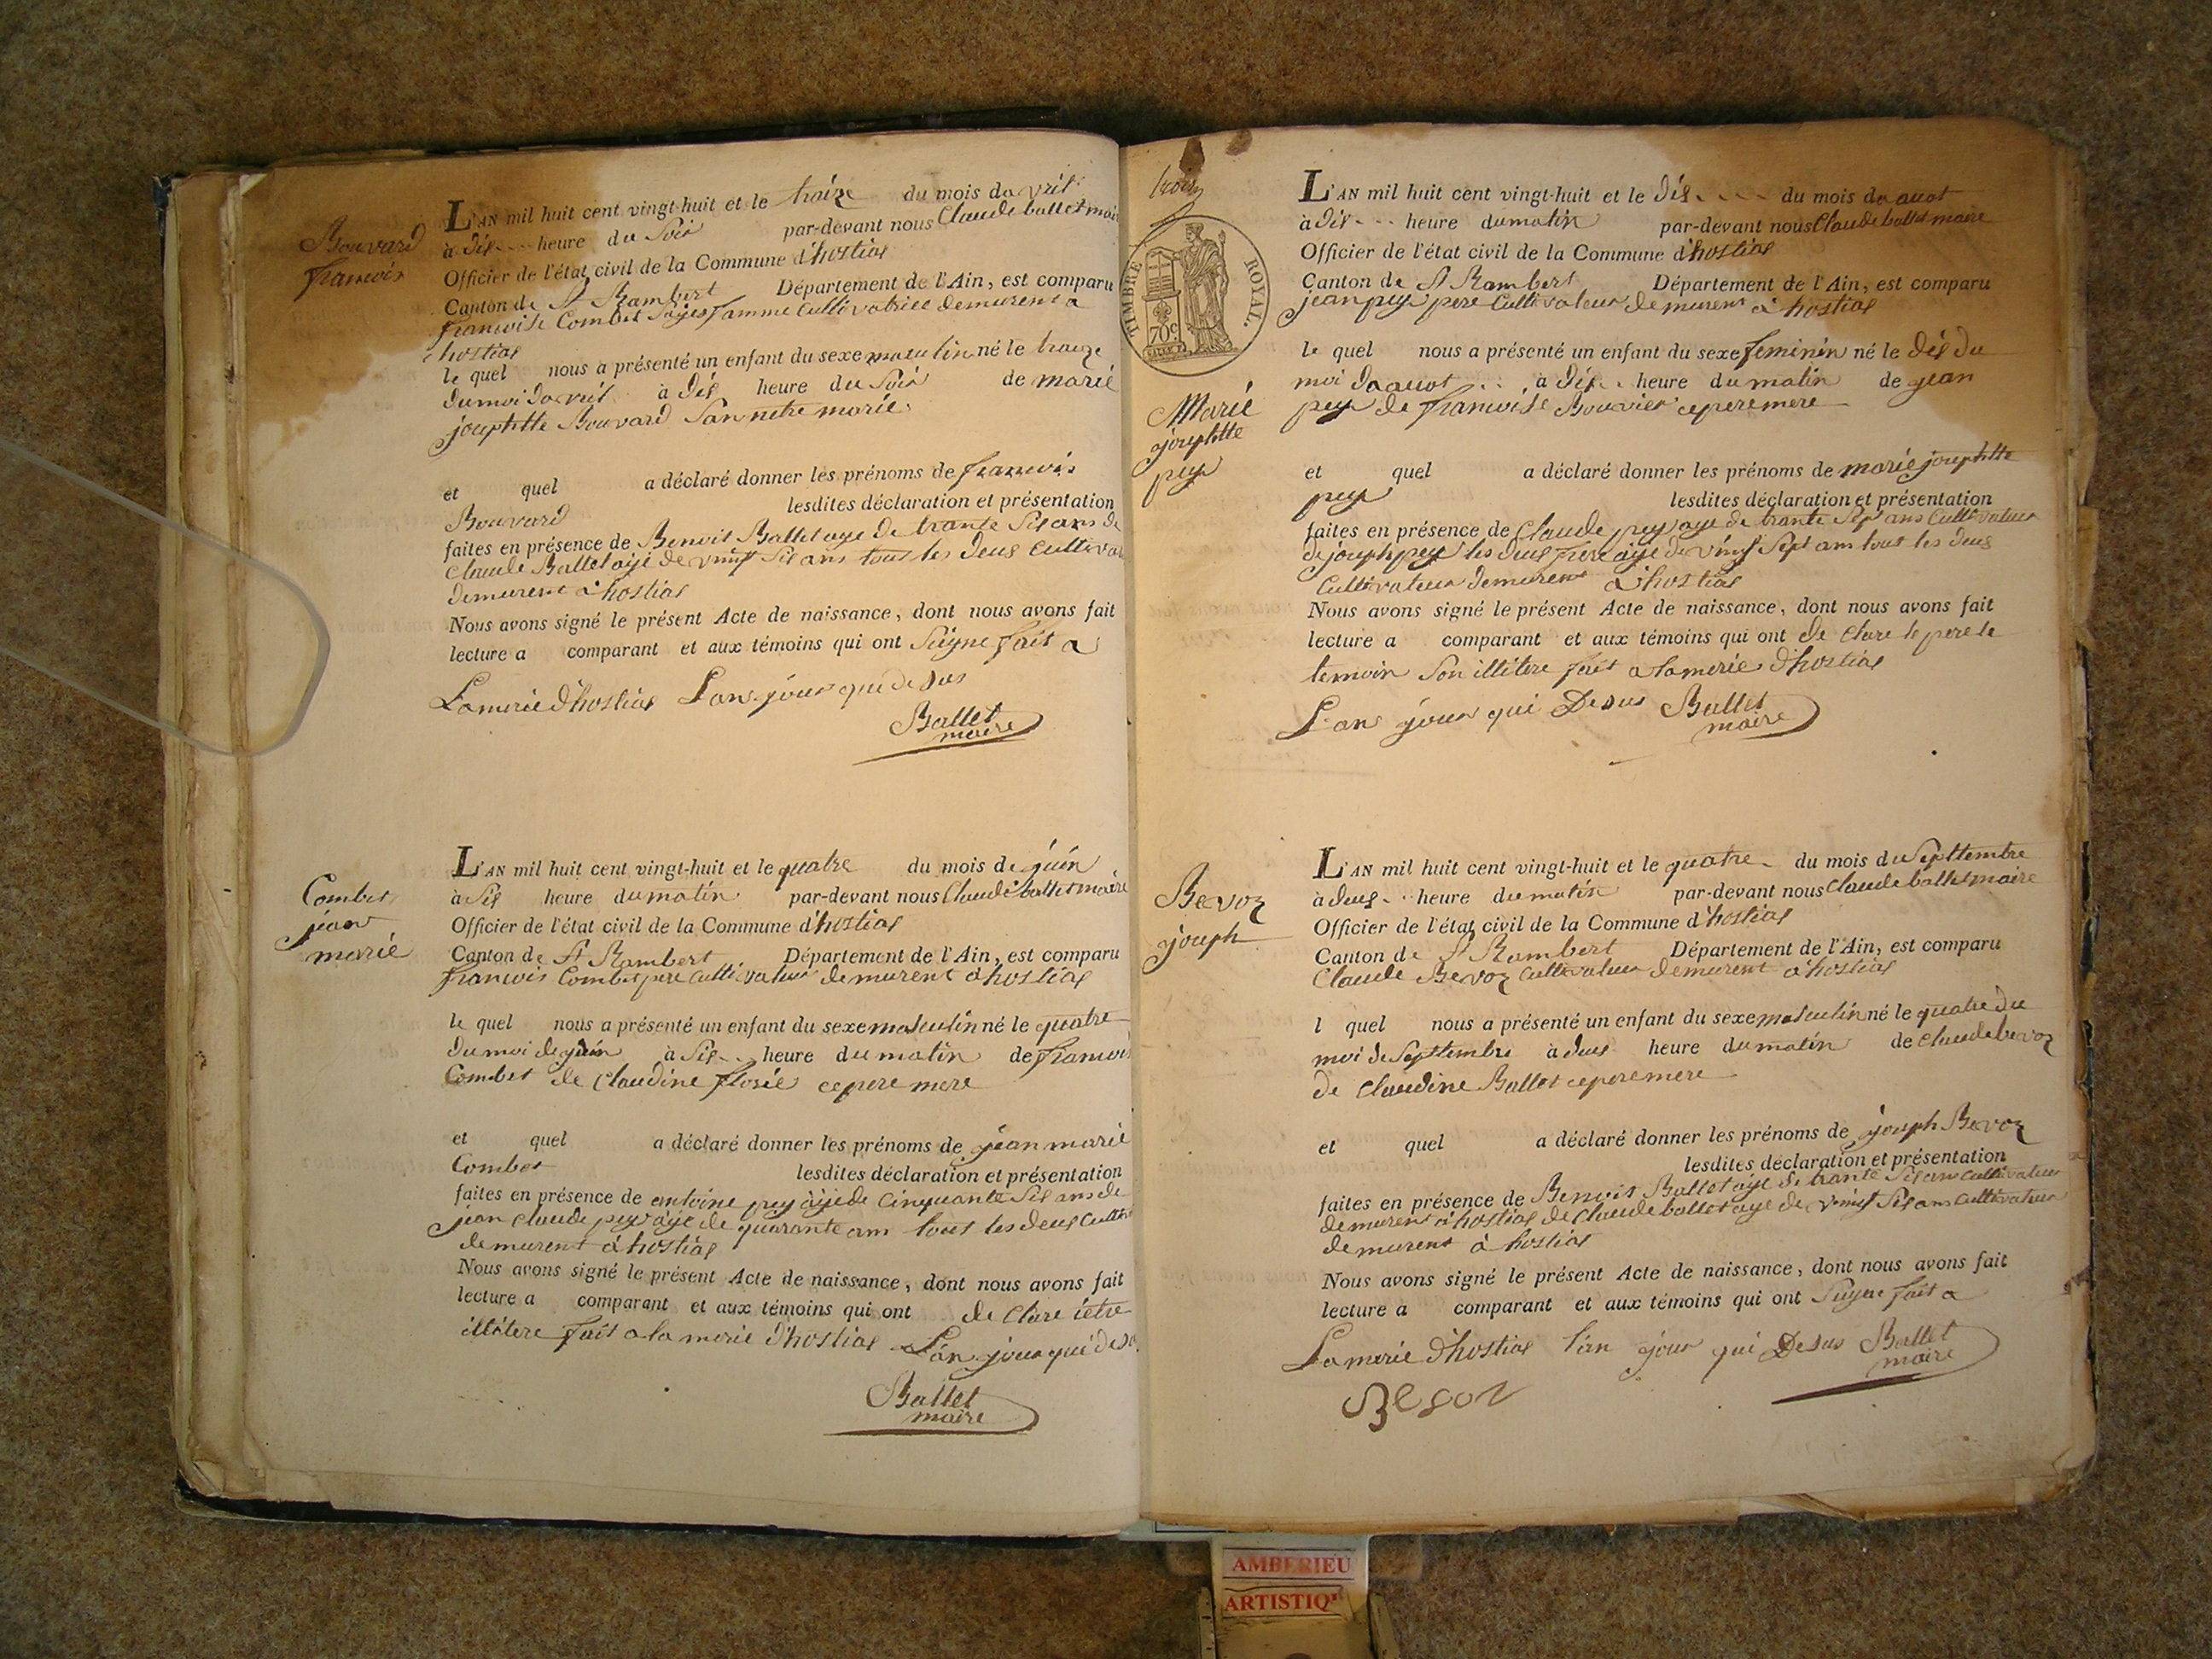 Bouvard
francois
L'AN mil huit cent vingt-huit et le traize du mois da vril
à dis heure du soir par-devant nous Claude ballet maire
Officier de l'état civil de la Commune d'hostias
Canton de St Rambert Département de l'Ain, est comparu
francoise Combet sages famme Cultivatrice demurent a
hostias
le quel nous a présenté un enfant du sexe masculin né le traize
du moi davril à dis heure du soir de marie
josephtte Bouvard san netre marie
et quel a déclaré donner les prénoms de francois
Bouvard lesdites déclaration et présentation
faites en présence de Benoit Ballet age de trante sis ans de
Claude Ballet agé de vint sis ans tous les deus cultivat
demurent a hostias
Nous avons signé le présent Acte de naissance, dont nous avons fait
lecture a comparant et aux témoins qui ont signe fait a
Lamerie d'hostias L'an jour que de sus
Ballet
maire
Combet
jean
marie
L'AN mil huit cent vingt-huit et le quatre du mois de juin
à sis heure du matin par-devant nous Claude ballet maire
Officier de l'état civil de la Commune d'hostias
Canton de St Rambert Département de l'Ain, est comparu
francois Combet pere cultivateur demurent a hostias
le quel nous a présenté un enfant du sexe masculin né le quatre
du moi de juin à sis heure du matin de francois
Combet de Claudine florie ce pere mere
et quel a déclaré donner les prénoms de jean marie
Combet lesdites déclaration et présentation
faites en présence de entoine pey agé de cinquante sis ans de
jean claude pey agé de quarante ans tout les deus Cultiv
demurent a hostias
Nous avons signé le présent Acte de naissance, dont nous avons fait
lecture a comparant et aux témoins qui ont de clare ietre
illitere fait a la merie d'hostias L'an jour qui de su
Ballet
maire
trois
TIMBRE ROYAL.
70c
Marie
josephtte
pey
L'AN mil huit cent vingt-huit et le dis du mois da auot
à dis heure du matin par-devant nous Claude ballet maire
Officier de l'état civil de la Commune d'hostias
Canton de St Rambert Département de l'Ain, est comparu
jean pey pere Cultivateur demurent a hostias
le quel nous a présenté un enfant du sexe feminin né le dis du
moi da auot à dis heure du matin de jean
pey de francoise Bouvier ce pere mere
et quel a déclaré donner les prénoms de marie josephtte
pey lesdites déclaration et présentation
faites en présence de Claude pey age de trante sept ans Cultivateur
de joseph pey les deus frere age de vint sept ans tout les deus
Cultivateur demurent a hostias
Nous avons signé le présent Acte de naissance, dont nous avons fait
lecture a comparant et aux témoins qui ont de clare le pere le
temoin son illitere fait a lamerie d'hostias
L'an jour qui Desus Ballet
maire
Bevoz
joseph
L'AN mil huit cent vingt-huit et le quatre du mois du Septtembre
à deus heure du matin par-devant nous Claude ballet maire
Officier de l'état civil de la Commune d'hostias
Canton de St Rambert Département de l'Ain, est comparu
Claude Bevoz Cultivateur demurent a hostias
l quel nous a présenté un enfant du sexe masculin né le quatre du
moi de Septtembre à deus heure du matin de claude bevoz
de Claudine Ballet ce pere mere
et quel a déclaré donner les prénoms de joseph Bevoz
lesdites déclaration et présentation
faites en présence de Benoit Ballet age de trante sis ans cultivateur
demurent a hostias de Claude ballet age de vint sis ans cultivateur
demurent a hostias
Nous avons signé le présent Acte de naissance, dont nous avons fait
lecture a comparant et aux témoins qui ont signe fait a
Lamerie d'hostias l'an jour qui Desus Ballet
maire
AMBERIEU
ARTISTIQ